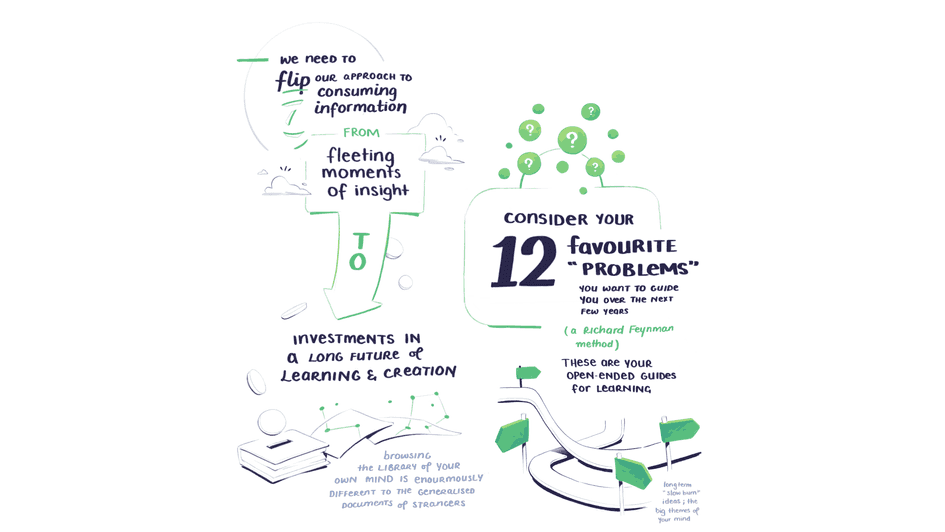 WE NEED TO
flip OUR APPROACH TO
consuming
information
FROM
fleeting
moments
of insight
TO
INVESTMENTS IN
a LONG FUTURE of
LEARNING & CREATION
browsing
the LIBRARY of YOUR
OWN MIND IS ENOURMOUSLY
DIFFERENT TO THE GENERALISED
DOCUMENTS OF STRANGERS
? ? ? ? ?
CONSIDER YOUR
12 favourite
"PROBLEMS"
YOU WANT TO GUIDE
YOU OVER THE NEXT
FEW YEARS
(a Richard Feynman
method)
THESE ARE YOUR
OPEN-ENDED GUIDES
for LEARNING
long term
"slow burn"
ideas ; the
big themes of
your mind